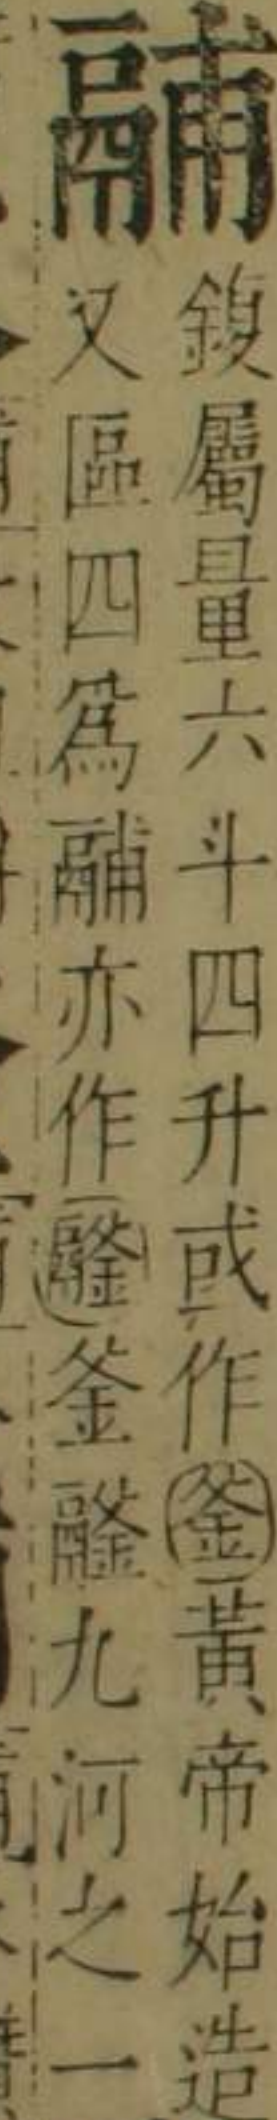 鬴
鍑屬量六斗四升或作釜黃帝始造
又區四爲鬴亦作䥣釜䥣九河之一